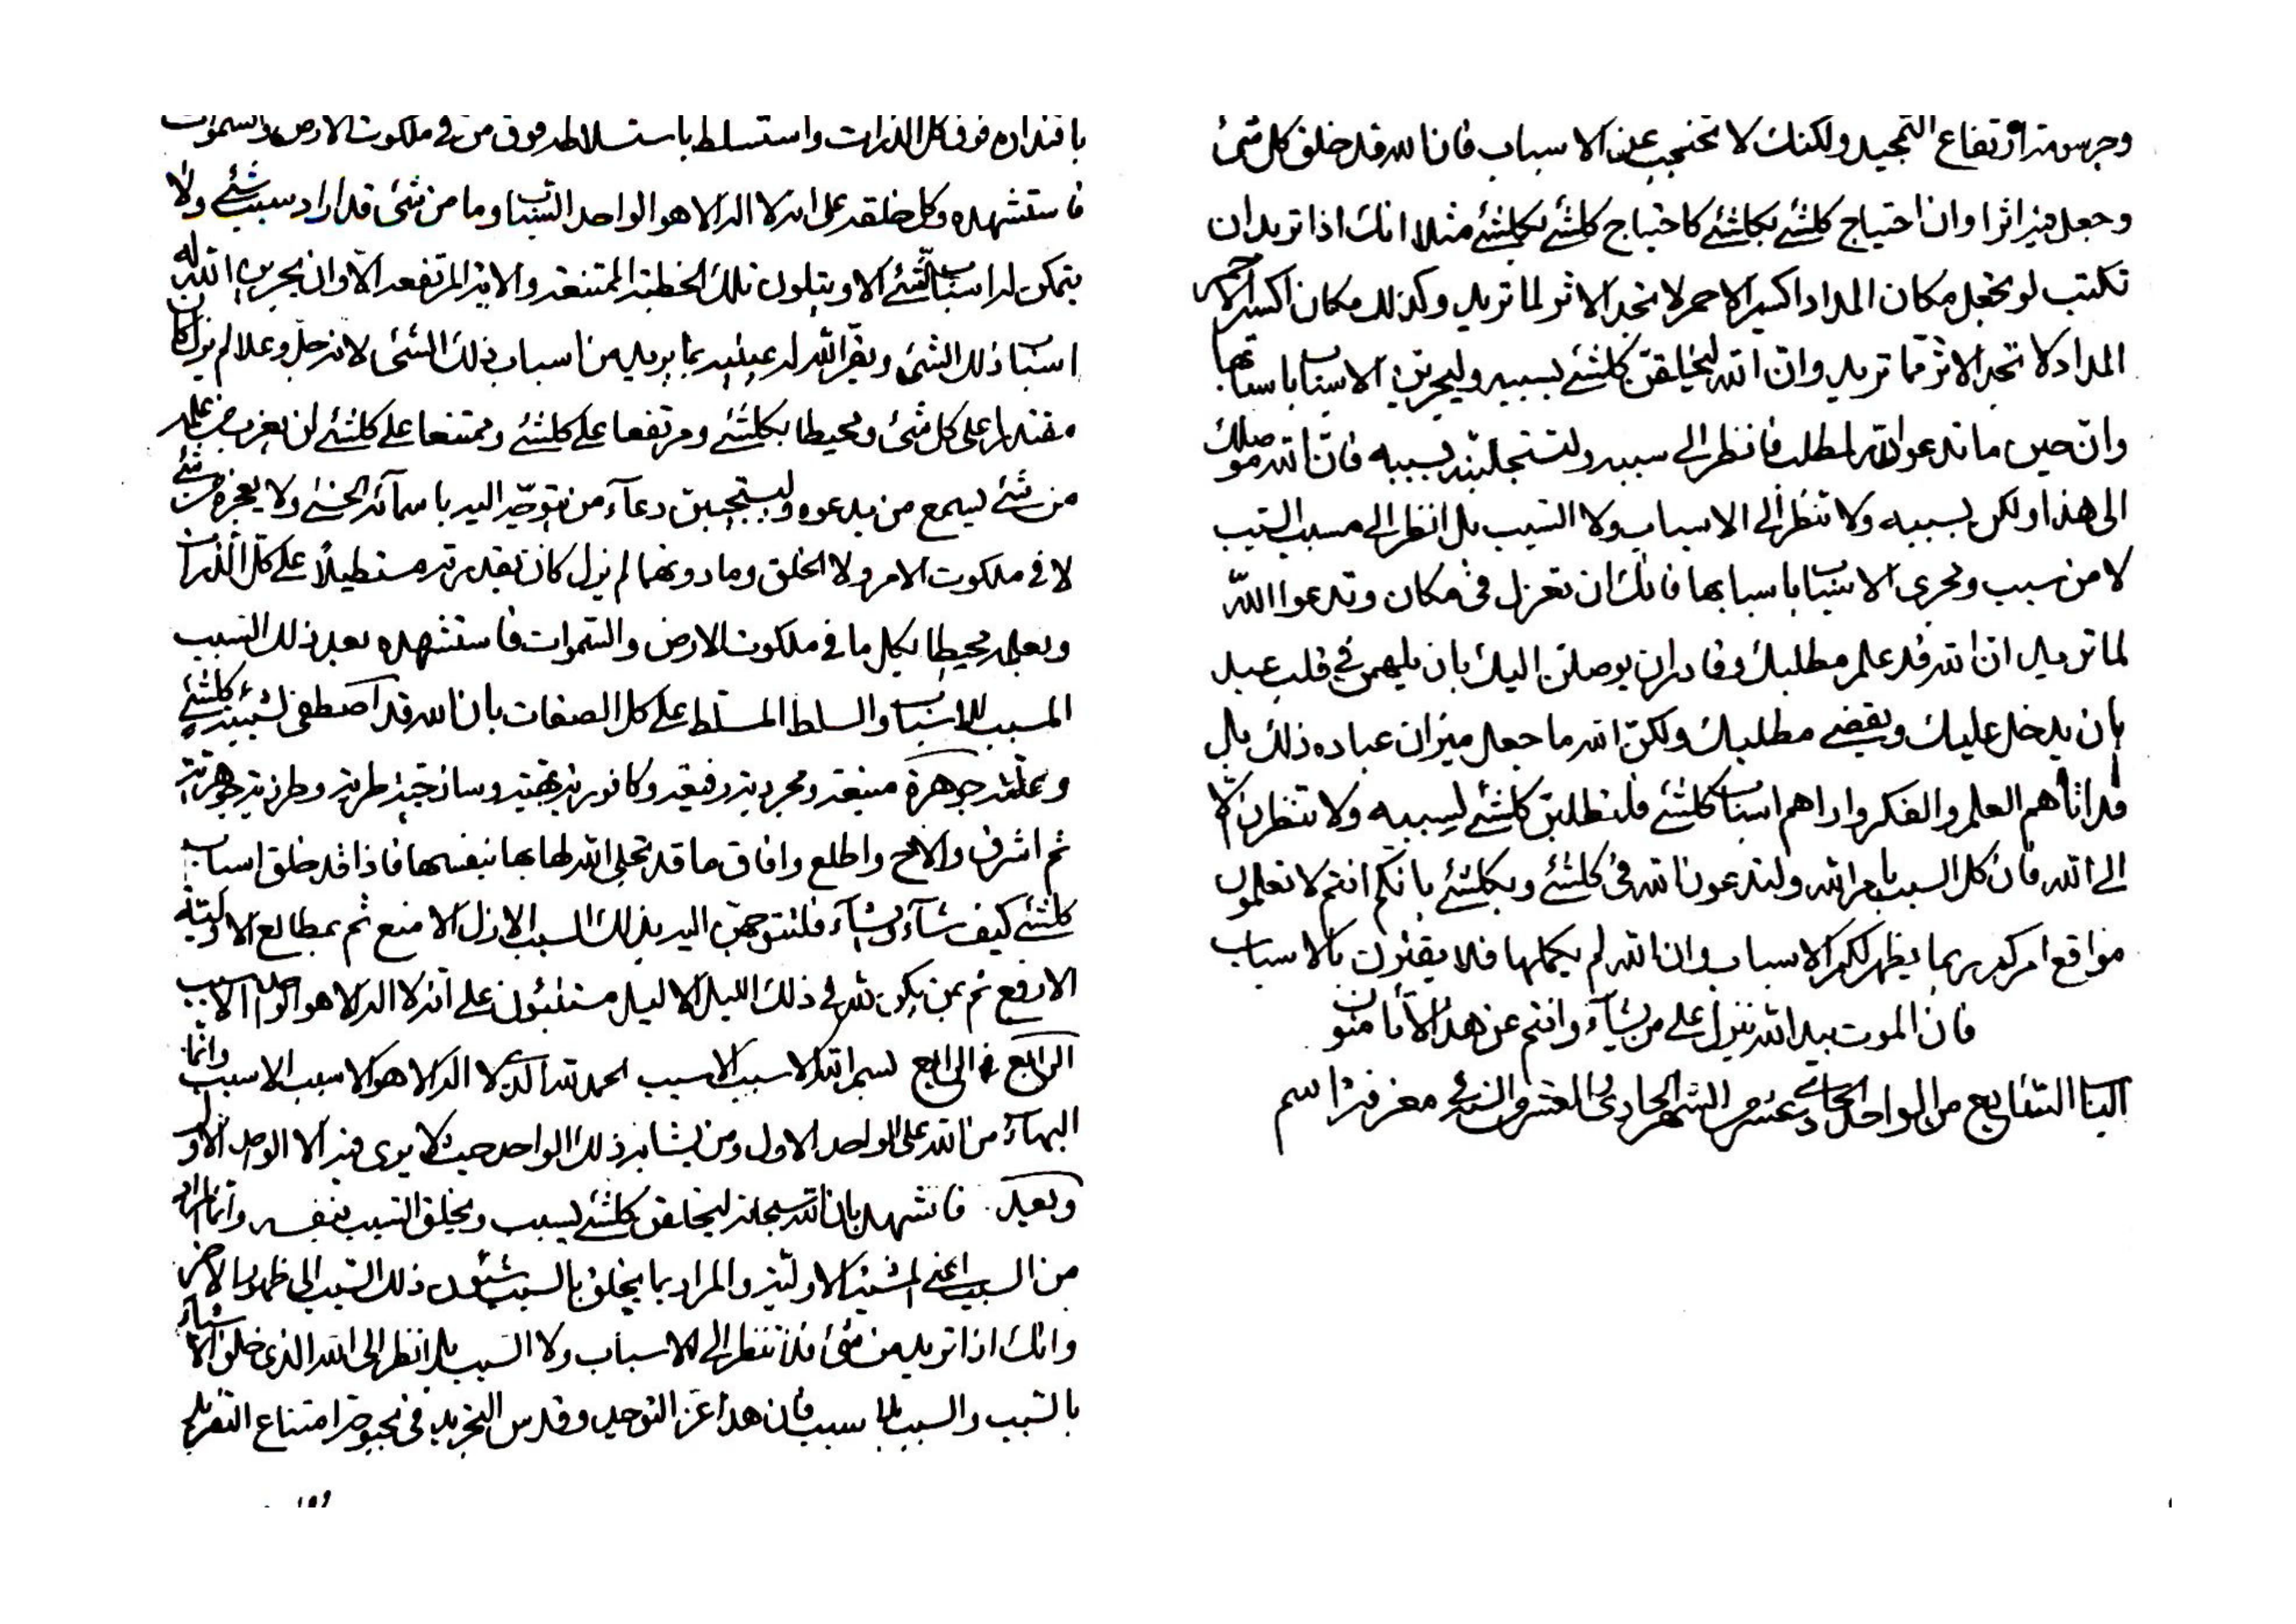 باقتداره فوق كل الذرات واستسلط باستسلاطه فوق من في ملكوت الارض والسموات
فاستشهده وكل خلقه على انه لا اله الا هو الواحد السباب وما من شئ قد اراد سبب شئ ولا
يتمكن له اسباب الشئ الا ويتلون تلك الخطبة الممتنعة والاية المرتفعة الا وان يجرين الله له
اسباب ذلك الشئ ويقر الله له عينيه بما يريد من اسباب ذلك الشئ لانه جل وعلا لم يزل كان
مقتدرا على كل شئ ومحيطا بكلشئ ومرتفعا على كلشئ وممتنعا على كلشئ لن يعزب من علمه
من شئ ليسمع من يدعوه وليستجيبن دعاء من يتوجه اليه باسمائه الحسنى ولا يعجزه من شئ
لا في ملكوت الامر ولا الخلق وما دونهما لم يزل كان بقدرته مستطيلا على كل الذرات
وبعلمه محيطا بكل ما في ملكوت الارض والسموات فاستشهده بعد ذلك السبب
المسبب للاسباب والسلط المسلط على كل الصفات بان الله قد اصطفى لشيئية كلشئ
وعلته جوهرة منيعة ومجردية رفيعة وكافورية بهية وساذجية طرية وطرزية جوهرية
ثم اشرق والاح واطلع وافاق ما قد تجلى الله لها بها بنفسها فاذا قد خلق اسباب
كلشئ كيف شاء ويشاء فلتتوجهن اليه بذلك السبب الازل الامنع ثم بمطالع الاولية
الارفع ثم بمن يكون لله في ذلك الليل الاليل مستنبئون على انه لا اله الا هو الاسبب
الرابع في الرابع بسم الله الاسبب الاسبب الحمد لله الذي لا اله الا هو الاسبب الاسبب وانما
البهاء من الله على الواحد الاول ومن يشابه ذلك الواحد حيث لا يرى فيه الا الواحد الاول
وبعد فاشهد بان الله سبحانه ليخلقن كلشئ بسبب ويخلق السبب بنفسه وانما المراد
من السبب اعني المشية الاولية والمراد بما يخلق بالسبب شئون ذلك السبب الى ظهور الاخر
وانك اذا تريد من شئ فلا تنظر الى الاسباب ولا السبب بل انظر الى الله الذي خلق الاشياء
بالسبب والسبب لا بالسبب فان هذا عز التوحيد وقدس التجريد في بحبوحة امتناع التفريد
وجرسومة ارتفاع التمجيد ولكنك لا تحتجب عن الاسباب فان الله قد خلق كل شئ
وجعل فيه اثرا وان احتياج كلشئ بكلشئ كاحتياج كلشئ بكلشئ مثلا انك اذا تريد ان
تكتب لو تجعل مكان المداد اكسير الاحمر لا تجد الاثر لما تريد وكذلك مكان اكسير الاحمر
المداد لا تجد الاثر مما تريد وان الله ليخلقن كلشئ بسببه وليجرين الاسباب باسبابها
وان حين ما تدعو الله لمطلب فانظر الى سببه ولتستجلبنه بسببه فان الله موصلك
الى هذا ولكن بسببه ولا تنظر الى الاسباب ولا السبب بل انظر الى مسبب السبب
لا من سبب ومجري الاسباب باسبابها فانك ان تعزل في مكان وتدعوا الله
لما تريد ان الله قد علم مطلبك وقادر ان يوصلن اليك بان يلهمن في قلب عبد
بان يدخل عليك ويقضي مطلبك ولكن الله ما جعل ميزان عباده ذلك بل
قد اتاهم العلم والفكر واراهم اسباب كلشئ فلتطلبن كلشئ لسببه ولا تنظرن الا
الى الله فان كل السبب بامر الله ولتدعون الله في كلشئ وبكلشئ بانكم انتم لا تعلمون
مواقع امركم ربما يظهر لكم الاسباب وان الله لم يكملها فلا يقترن بالاسباب
فان الموت بيد الله ينزل على من يشاء وانتم عن هذا لا تامنون
الباب السابع من الواحد الحادي عشر من الشهر الحادي العشر والسنة في معرفة اسم